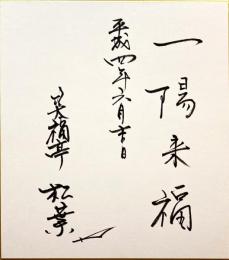 一陽来福
平成四年六月吉日
笑福亭 松葉